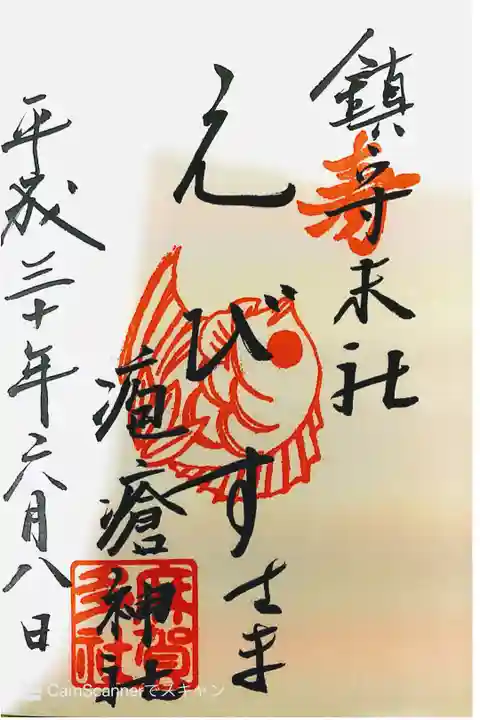 鎮守末社
寿
えびすさま
疱瘡神社
平成三十年六月八日
麻賀多神社
CamScannerでスキャン